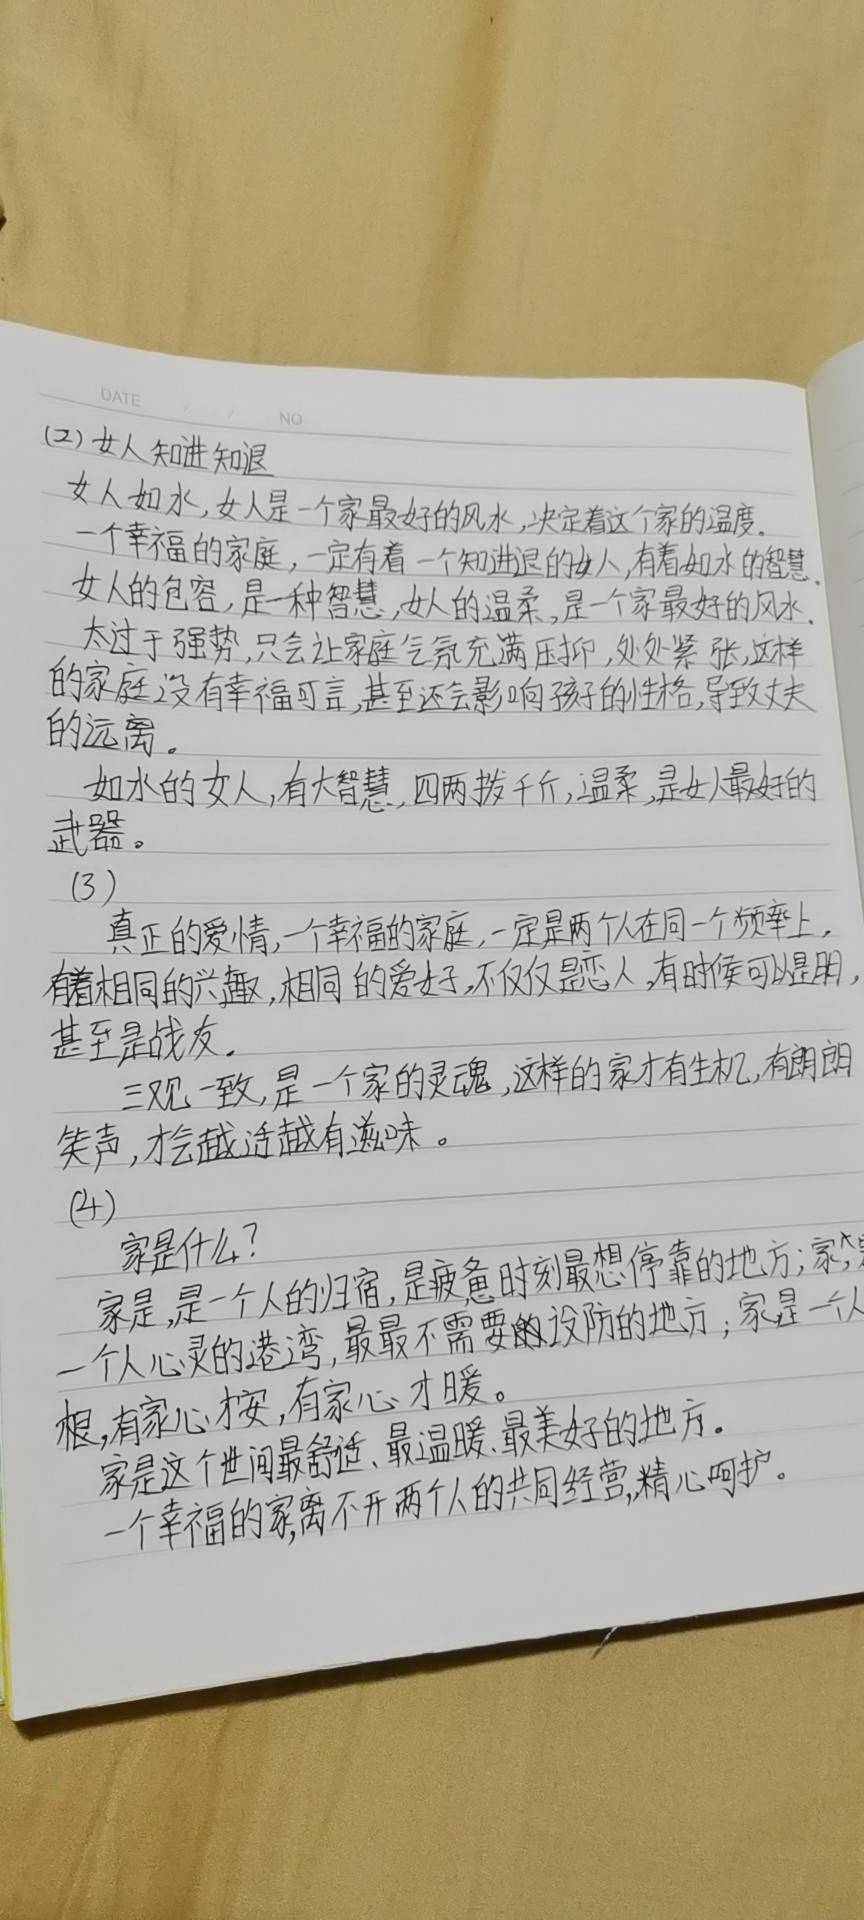 DATE / / NO
(2) 女人知进知退
女人如水,女人是一个家最好的风水,决定着这个家的温度.
一个幸福的家庭,一定有着一个知进退的女人,有着如水的智慧.
女人的包容,是一种智慧,女人的温柔,是一个家最好的风水.
太过于强势,只会让家庭气氛充满压抑,处处紧张,这样
的家庭没有幸福可言,甚至还会影响孩子的性格,导致丈夫
的远离。
如水的女人,有大智慧,四两拨千斤,温柔,是女人最好的
武器。
(3)
真正的爱情,一个幸福的家庭,一定是两个人在同一个频率上,
有着相同的兴趣,相同的爱好,不仅仅是恋人,有时候可以是朋,
甚至是战友.
三观一致,是一个家的灵魂,这样的家才有生机,有朗朗
笑声,才会越活越有滋味。
(4)
家是什么?
家是,是一个人的归宿,是疲惫时刻最想停靠的地方;家,
一个人心灵的港湾,最最不需要设防的地方;家是一个人
根,有家心才安,有家心才暖。
家是这个世间最舒适、最温暖、最美好的地方。
一个幸福的家,离不开两个人的共同经营,精心呵护。